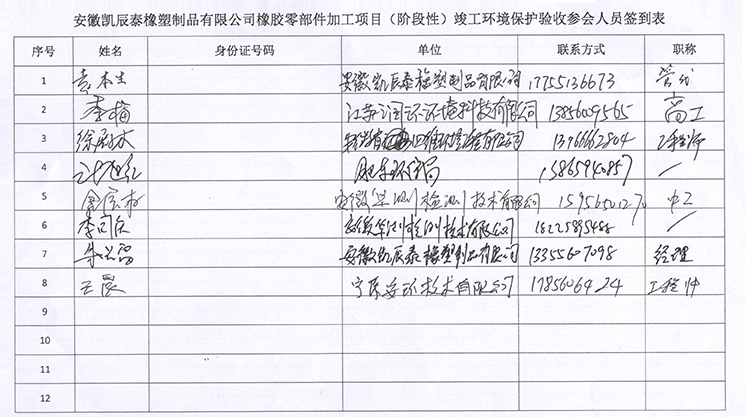 安徽凯辰泰橡塑制品有限公司橡胶零部件加工项目（阶段性）竣工环境保护验收参会人员签到表
序号 姓名 身份证号码 单位 联系方式 职称
1 袁本生 安徽凯辰泰橡塑制品有限公司 17755136673 管代
2 李梅 江苏润环环境科技有限公司 13856009565 高工
3 有限公司 13966662804 工程师
4 肥东环保局 /
5 安徽华测检测技术有限公司 15956501270 中工
6 安徽华测检测技术有限公司 18225895488 /
7 安徽凯辰泰橡塑制品有限公司 13355607098 经理
8 王晨 安环技术有限公司 17856064 工程师
9
10
11
12